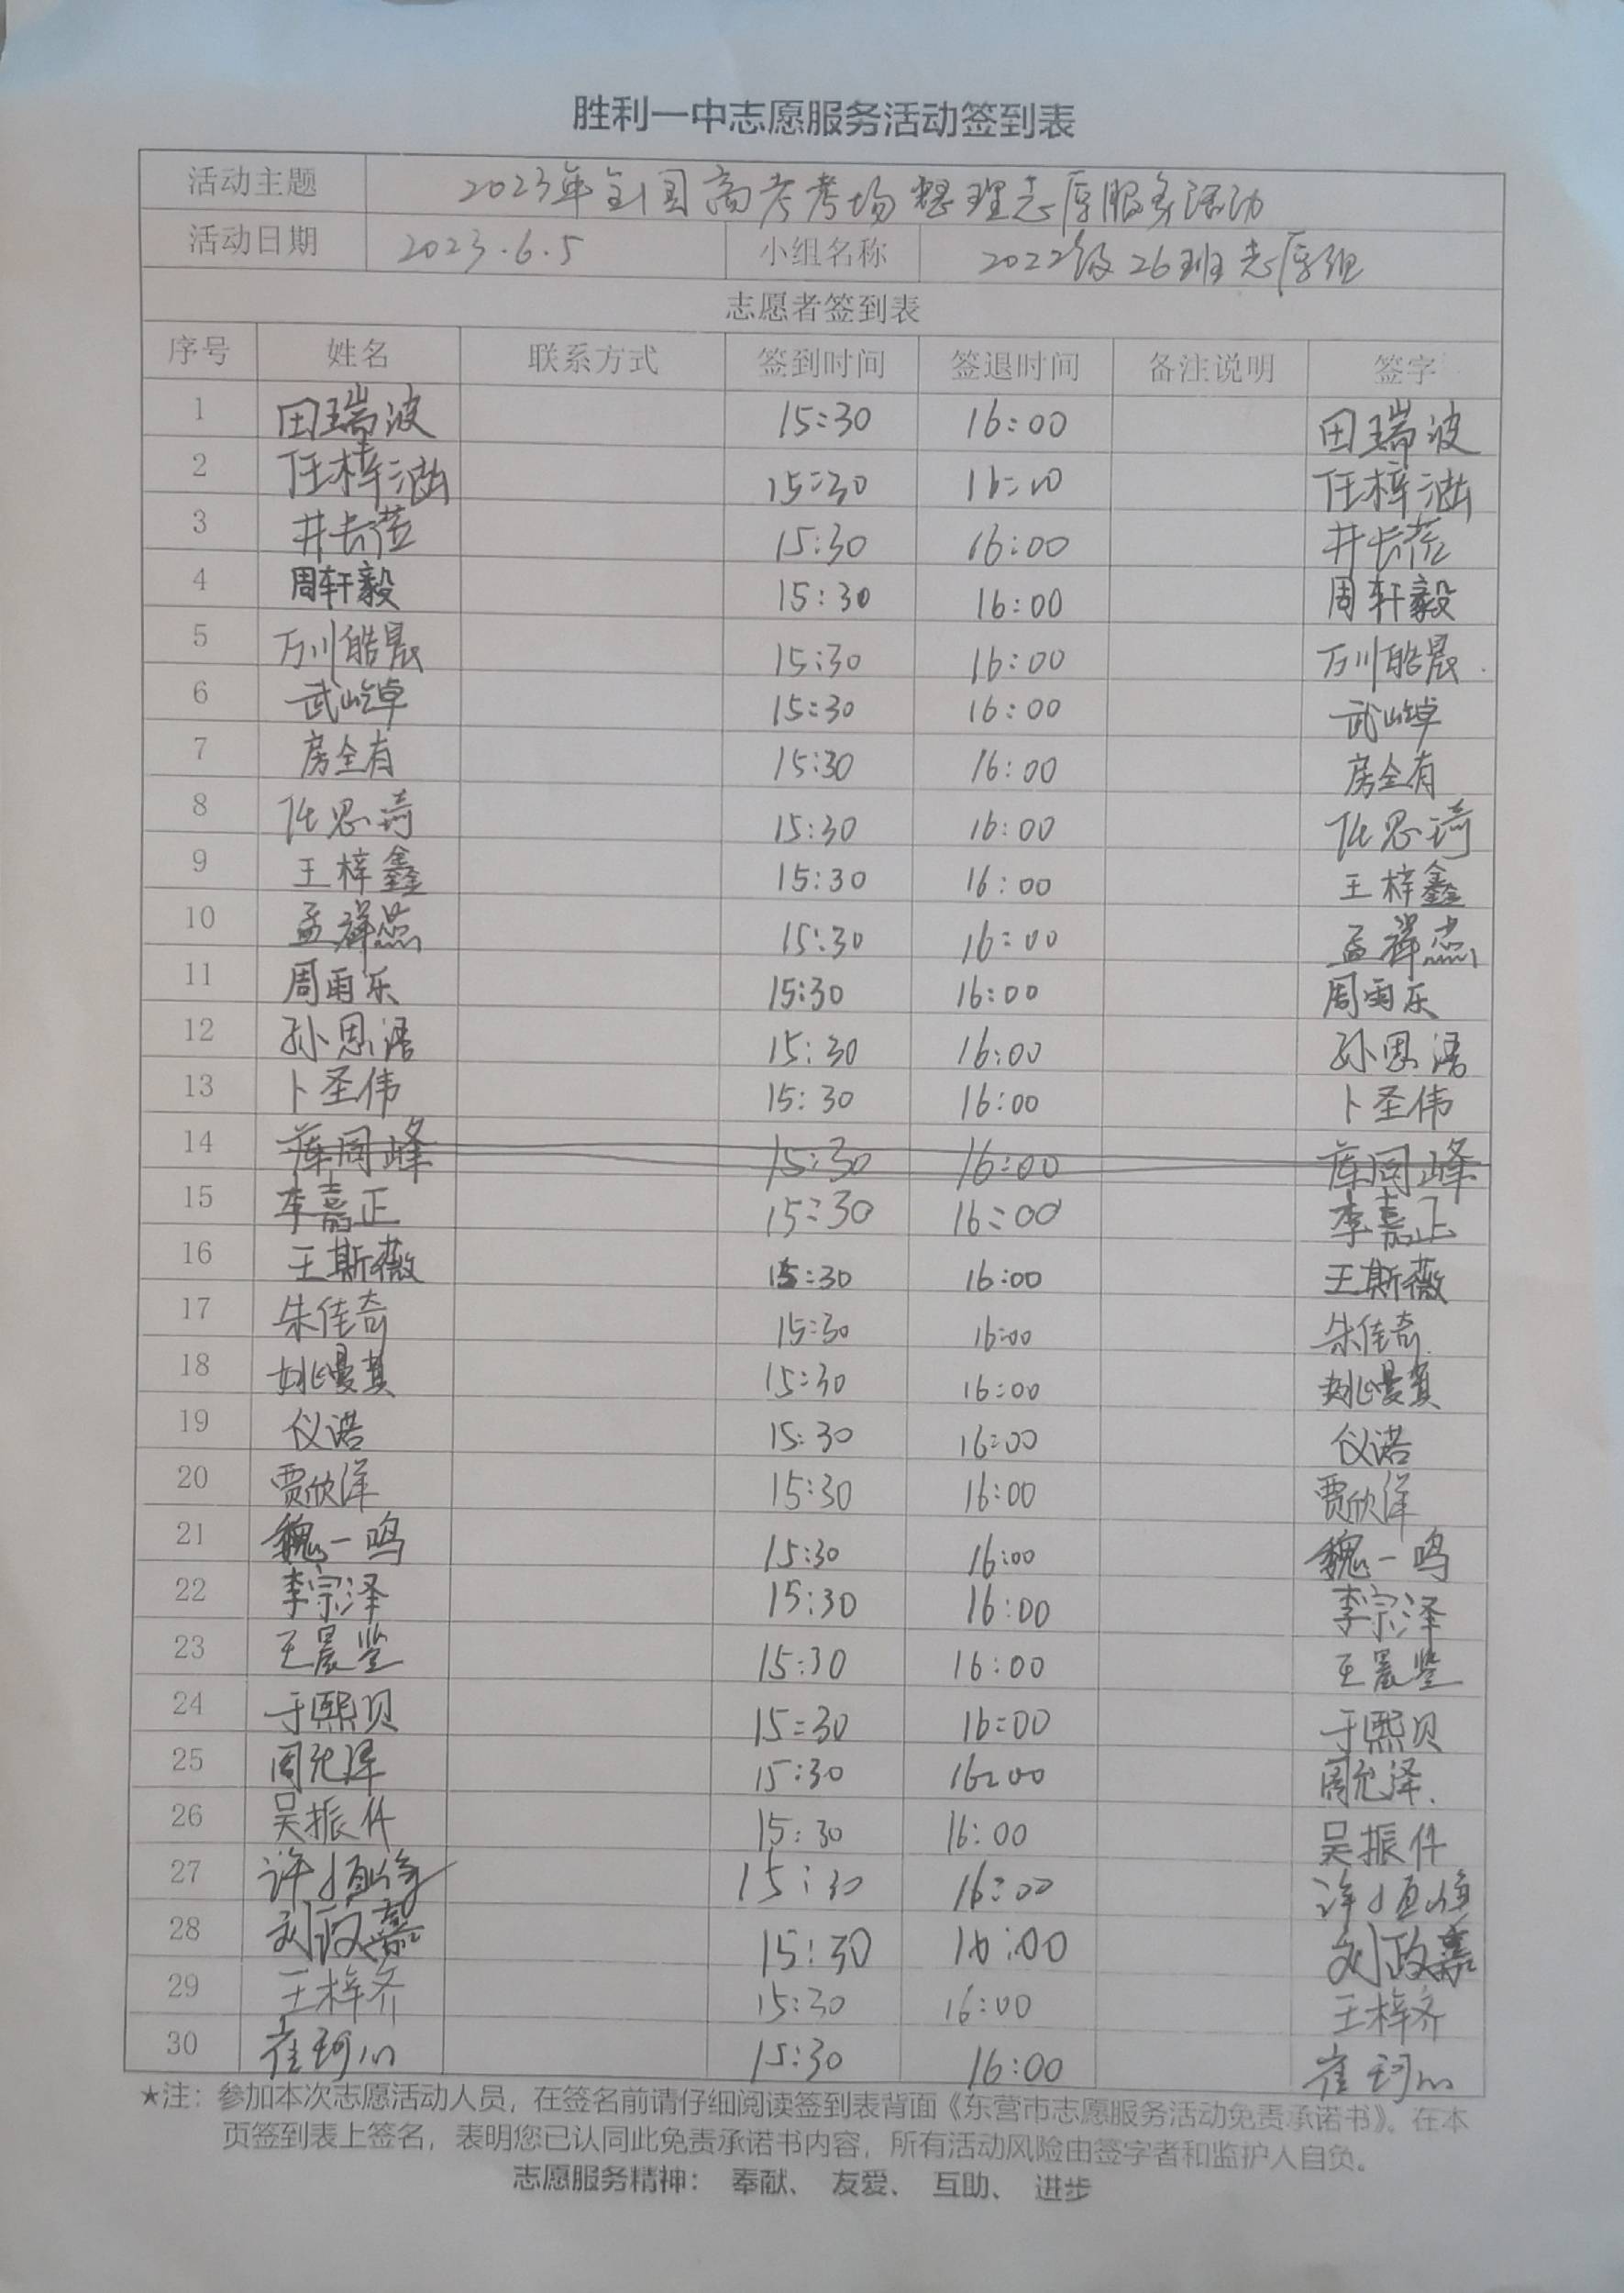 胜利一中志愿服务活动签到表
活动主题 2023年全国高考考场整理志愿服务活动
活动日期 2023.6.5 小组名称 2022级26班志愿组
志愿者签到表
序号 姓名 联系方式 签到时间 签退时间 备注说明 签字
1 田瑞波 15:30 16:00 田瑞波
2 任梓涵 15:30 16:00 任梓涵
3 井长莅 15:30 16:00 井长莅
4 周轩毅 15:30 16:00 周轩毅
5 万川皓晟 15:30 16:00 万川皓晟
6 武屹卓 15:30 16:00 武屹卓
7 房全有 15:30 16:00 房全有
8 任思琦 15:30 16:00 任思琦
9 王梓鑫 15:30 16:00 王梓鑫
10 孟祥燕 15:30 16:00 孟祥燕
11 周雨乐 15:30 16:00 周雨乐
12 孙思语 15:30 16:00 孙思语
13 卜圣伟 15:30 16:00 卜圣伟
14 15:30 16:00
15 李嘉正 15:30 16:00 李嘉正
16 王斯薇 15:30 16:00 王斯薇
17 朱佳奇 15:30 16:00 朱佳奇
18 姚曼其 15:30 16:00 姚曼其
19 仪诺 15:30 16:00 仪诺
20 贾欣洋 15:30 16:00 贾欣洋
21 魏一鸣 15:30 16:00 魏一鸣
22 李宗泽 15:30 16:00 李宗泽
23 王晨 15:30 16:00 王晨
24 于熙贝 15:30 16:00 于熙贝
25 周允泽 15:30 16:00 周允泽
26 吴振 15:30 16:00 吴振
27 许恒 15:30 16:00 许恒
28 刘政嘉 15:30 16:00 刘政嘉
29 王梓齐 15:30 16:00 王梓齐
30 崔珂 15:30 16:00 崔珂
★注：参加本次志愿活动人员，在签名前请仔细阅读签到表背面《东营市志愿服务活动免责承诺书》。在本
页签到表上签名，表明您已认同此免责承诺书内容，所有活动风险由签字者和监护人自负。
志愿服务精神： 奉献、 友爱、 互助、 进步